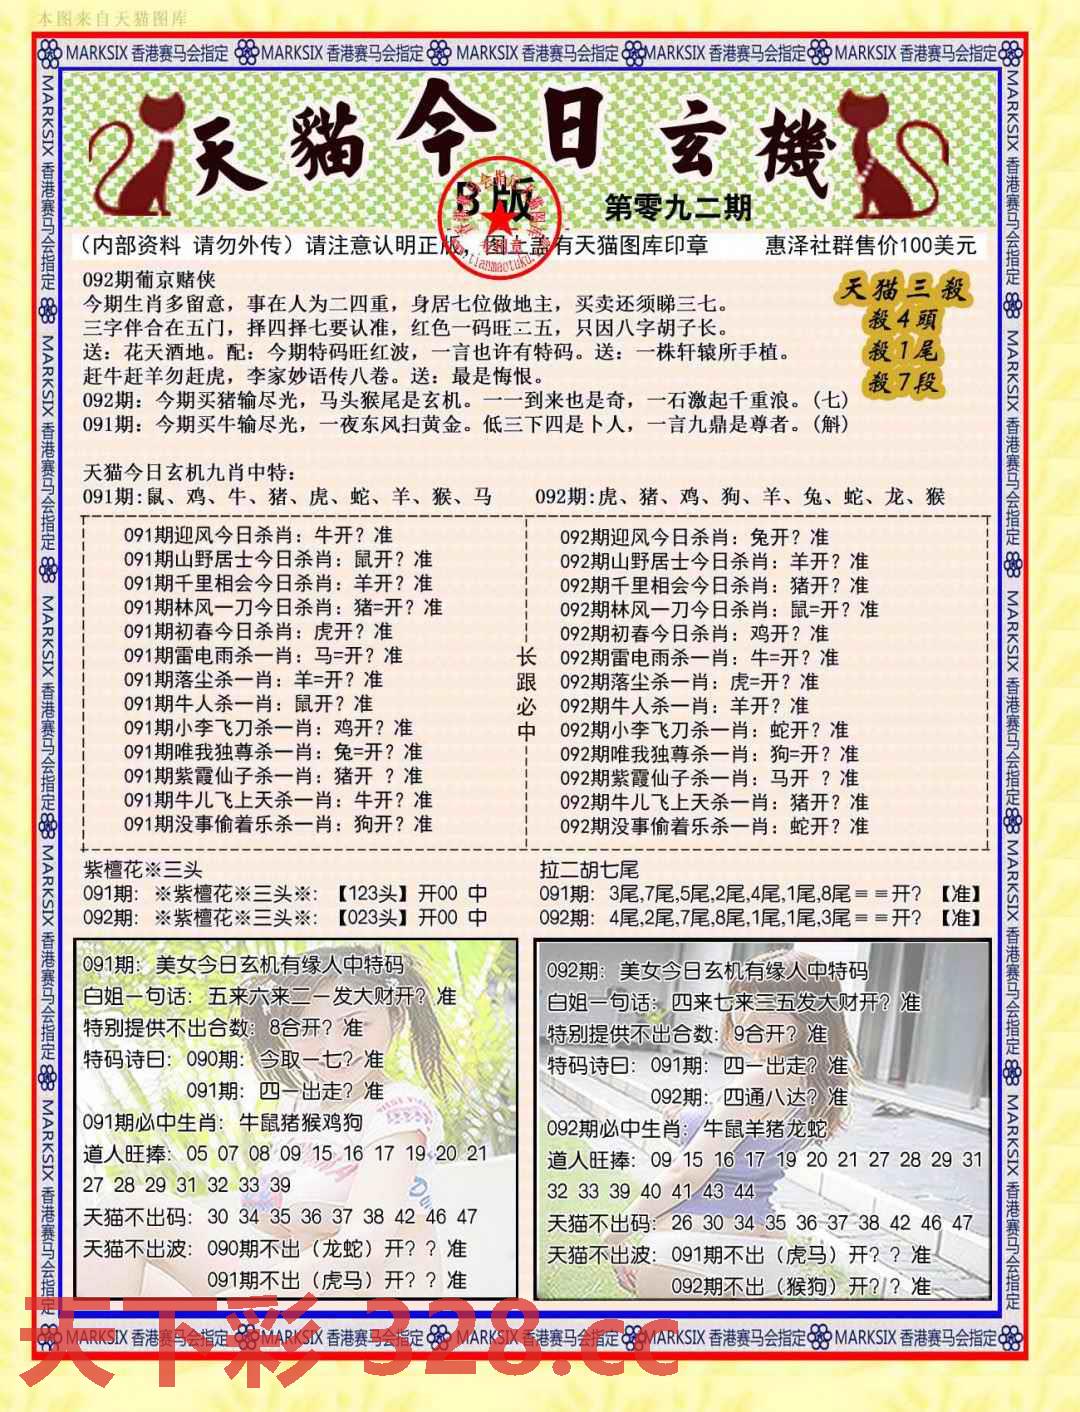 本图来自天猫图库
MARKSIX 香港赛马会指定 MARKSIX 香港赛马会指定 MARKSIX 香港赛马会指定 MARKSIX 香港赛马会指定 MARKSIX 香港赛马会指定
天貓今日玄機
B版
第零九二期
（内部资料 请勿外传）请注意认明正版，图上盖有天猫图库印章 惠泽社群售价100美元
092期葡京赌侠
今期生肖多留意，事在人为二四重，身居七位做地主，买卖还须睇三七。
三字伴合在五门，择四择七要认准，红色一码旺二五，只因八字胡子长。
送：花天酒地。配：今期特码旺红波，一言也许有特码。送：一株轩辕所手植。
赶牛赶羊勿赶虎，李家妙语传八卷。送：最是悔恨。
092期：今期买猪输尽光，马头猴尾是玄机。一一到来也是奇，一石激起千重浪。(七)
091期：今期买牛输尽光，一夜东风扫黄金。低三下四是卜人，一言九鼎是尊者。(斛)
天猫三殺
殺4頭
殺1尾
殺7段
天猫今日玄机九肖中特：
091期:鼠、鸡、牛、猪、虎、蛇、羊、猴、马 092期:虎、猪、鸡、狗、羊、兔、蛇、龙、猴
091期迎风今日杀肖：牛开？准
091期山野居士今日杀肖：鼠开？准
091期千里相会今日杀肖：羊开？准
091期林风一刀今日杀肖：猪=开？准
091期初春今日杀肖：虎开？准
091期雷电雨杀一肖：马=开？准
091期落尘杀一肖：羊=开？准
091期牛人杀一肖：鼠开？准
091期小李飞刀杀一肖：鸡开？准
091期唯我独尊杀一肖：兔=开？准
091期紫霞仙子杀一肖：猪开 ？准
091期牛儿飞上天杀一肖：牛开？准
091期没事偷着乐杀一肖：狗开？准
长跟必中
092期迎风今日杀肖：兔开？准
092期山野居士今日杀肖：羊开？准
092期千里相会今日杀肖：猪开？准
092期林风一刀今日杀肖：鼠=开？准
092期初春今日杀肖：鸡开？准
092期雷电雨杀一肖：牛=开？准
092期落尘杀一肖：虎=开？准
092期牛人杀一肖：羊开？准
092期小李飞刀杀一肖：蛇开？准
092期唯我独尊杀一肖：狗=开？准
092期紫霞仙子杀一肖：马开 ？准
092期牛儿飞上天杀一肖：猪开？准
092期没事偷着乐杀一肖：蛇开？准
紫檀花※三头
091期：※紫檀花※三头※：【123头】开00 中
092期：※紫檀花※三头※：【023头】开00 中
拉二胡七尾
091期：3尾,7尾,5尾,2尾,4尾,1尾,8尾＝＝开？【准】
092期：4尾,2尾,7尾,8尾,1尾,1尾,3尾＝＝开？【准】
091期：美女今日玄机有缘人中特码
白姐一句话：五来六来二一发大财开？准
特别提供不出合数：8合开？准
特码诗曰：090期：今取一七？准
091期：四一出走？准
091期必中生肖：牛鼠猪猴鸡狗
道人旺捧：05 07 08 09 15 16 17 19 20 21
27 28 29 31 32 33 39
天猫不出码：30 34 35 36 37 38 42 46 47
天猫不出波：090期不出（龙蛇）开？？准
091期不出（虎马）开？？准
092期：美女今日玄机有缘人中特码
白姐一句话：四来七来三五发大财开？准
特别提供不出合数：9合开？准
特码诗曰：091期：四一出走？准
092期：四通八达？准
092期必中生肖：牛鼠羊猪龙蛇
道人旺捧：09 15 16 17 19 20 21 27 28 29 31
32 33 39 40 41 43 44
天猫不出码：26 30 34 35 36 37 38 42 46 47
天猫不出波：091期不出（虎马）开？？准
092期不出（猴狗）开？？准
天下彩 328.cc
MARKSIX 香港赛马会指定 MARKSIX 香港赛马会指定 MARKSIX 香港赛马会指定 MARKSIX 香港赛马会指定 MARKSIX 香港赛马会指定